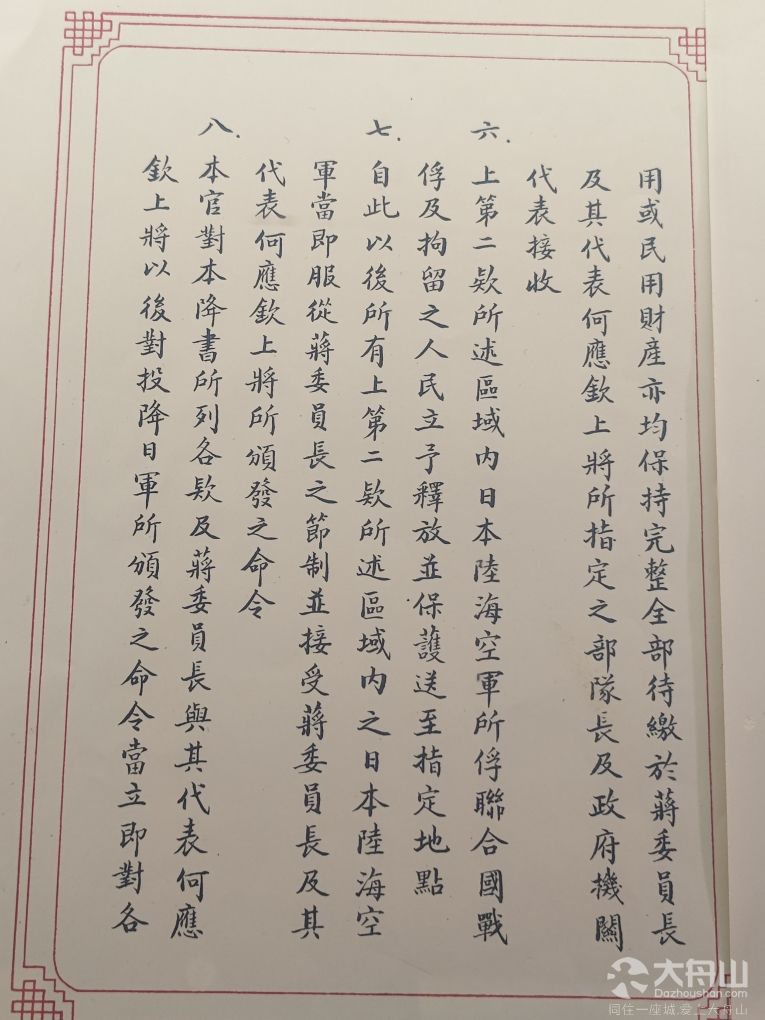 用或民用財產亦均保持完整全部待繳於蔣委員長
及其代表何應欽上將所指定之部隊長及政府機關
代表接收
六.上第二欵所述區域內日本陸海空軍所俘聯合國戰
俘及拘留之人民立予釋放並保護送至指定地點
七.自此以後所有上第二欵所述區域內之日本陸海空
軍當即服從蔣委員長之節制並接受蔣委員長及其
代表何應欽上將所頒發之命令
八.本官對本降書所列各欵及蔣委員長與其代表何應
欽上將以後對投降日軍所頒發之命令當立即對各
大舟山
Dazhoushan.com
同住一座城,爱上大舟山